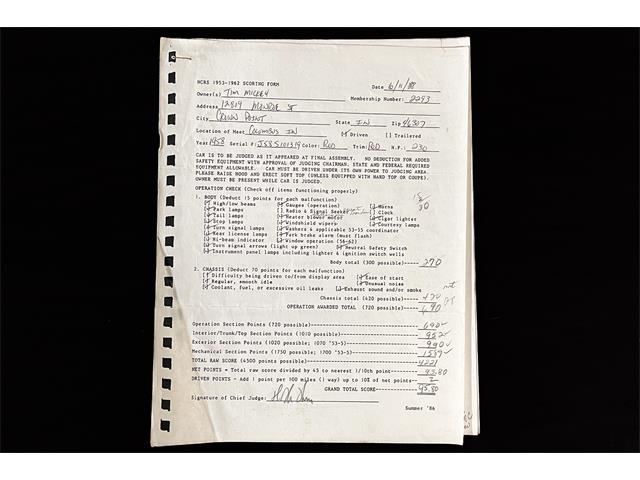 NCRS 1953-1962 SCORING FORM
Date 6/11/88
Owner(s) TIM MICKEY
Membership Number: 2293
Address 12819 MONROE ST
City CROWN POINT State IN Zip 46307
Location of Meet COLUMBUS IN [✓] Driven [ ] Trailered
Year 1958 Serial #: J58S101319 Color: RED Trim: RED H.P.: 230
CAR IS TO BE JUDGED AS IT APPEARED AT FINAL ASSEMBLY. NO DEDUCTION FOR ADDED
SAFETY EQUIPMENT WITH APPROVAL OF JUDGING CHAIRMAN. STATE AND FEDERAL REQUIRED
EQUIPMENT ALLOWABLE. CAR MUST BE DRIVEN UNDER ITS OWN POWER TO JUDGING AREA.
PLEASE RAISE HOOD AND ERECT SOFT TOP (UNLESS EQUIPPED WITH HARD TOP OR COUPE).
OWNER MUST BE PRESENT WHILE CAR IS JUDGED.
OPERATION CHECK (Check off items functioning properly)
1. BODY (Deduct 15 points for each malfunction)
[✓] High/low beams [✓] Gauges (operation) [✓] Horns
[✓] Park lamps [ ] Radio & Signal Seeker [ ] Clock
[✓] Tail lamps [✓] Heater blower motor [✓] Cigar lighter
[✓] Stop lamps [✓] Windshield wipers [✓] Courtesy lamps
[✓] Turn signal lamps [✓] Washers & applicable 53-55 coordinator
[✓] Rear license lamps [✓] Park brake alarm (must flash)
[✓] Hi-beam indicator [✓] Window operation (56-62)
[✓] Turn signal arrows (light up green) [✓] Neutral Safety Switch
[✓] Instrument panel lamps including lighter & ignition switch wells
Body total (300 possible)----- 270
2. CHASSIS (Deduct 70 points for each malfunction)
[✓] Difficulty being driven to/from display area [✓] Ease of start
[✓] Regular, smooth idle [✓] Unusual noise
[✓] Coolant, fuel, or excessive oil leaks [✓] Exhaust sound and/or smoke
Chassis total (420 possible)----- 420
OPERATION AWARDED TOTAL (720 possible)----- 690
Operation Section Points (720 possible)----- 690
Interior/Trunk/Top Section Points (1010 possible)----- 952
Exterior Section Points (1020 possible; 1070 '53-5)----- 990
Mechanical Section Points (1750 possible; 1700 '53-5)----- 1589
TOTAL RAW SCORE (4500 points possible)----- 4221
NET POINTS = Total raw score divided by 45 to nearest 1/10th point----- 93.80
DRIVEN POINTS - Add 1 point per 100 miles (1 way) up to 10% of net points-- 2
GRAND TOTAL SCORE----- 95.80
Signature of Chief Judge:
Summer '86